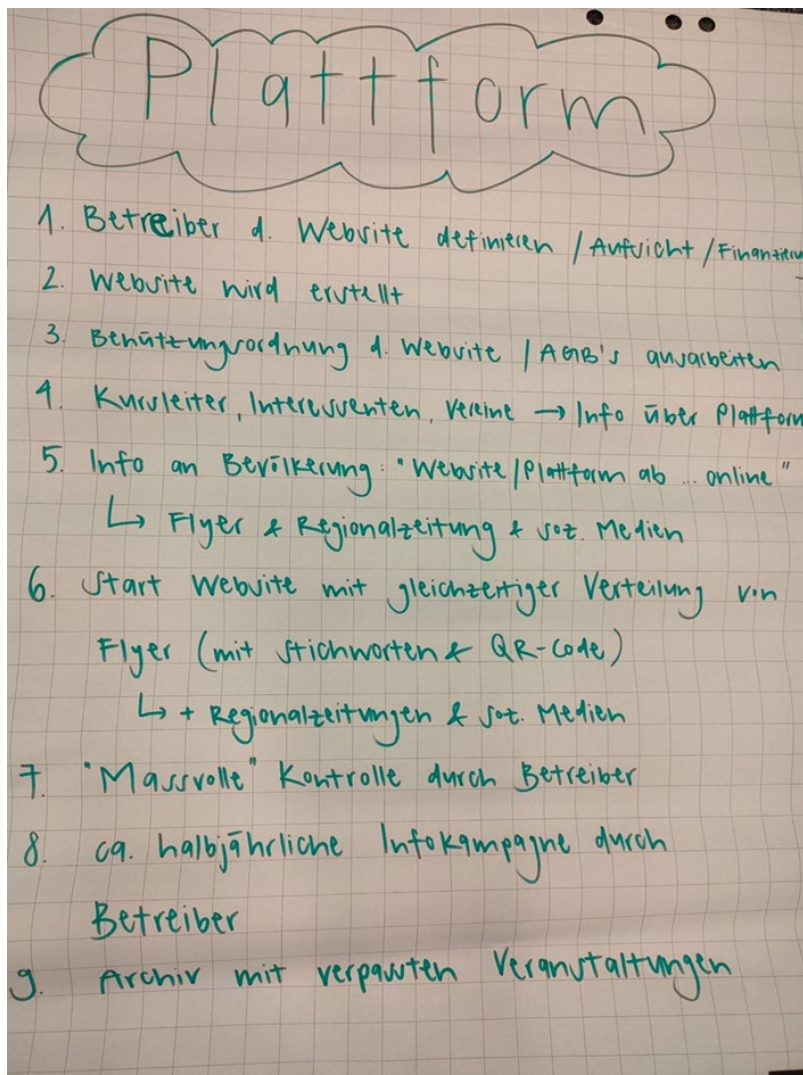 Plattform
1. Betreiber d. Website definieren / Aufsicht / Finanzierung
2. Website wird erstellt
3. Benützungsordnung d. Website / AGB's ausarbeiten
4. Kursleiter, Interessenten, Vereine → Info über Plattform
5. Info an Bevölkerung: "Website/Plattform ab ... online"
↳ Flyer & Regionalzeitung & soz. Medien
6. Start Website mit gleichzeitiger Verteilung von
Flyer (mit Stichworten & QR-Code)
↳ + Regionalzeitungen & soz. Medien
7. "Massvolle" Kontrolle durch Betreiber
8. ca. halbjährliche Infokampagne durch
Betreiber
9. Archiv mit verpassten Veranstaltungen